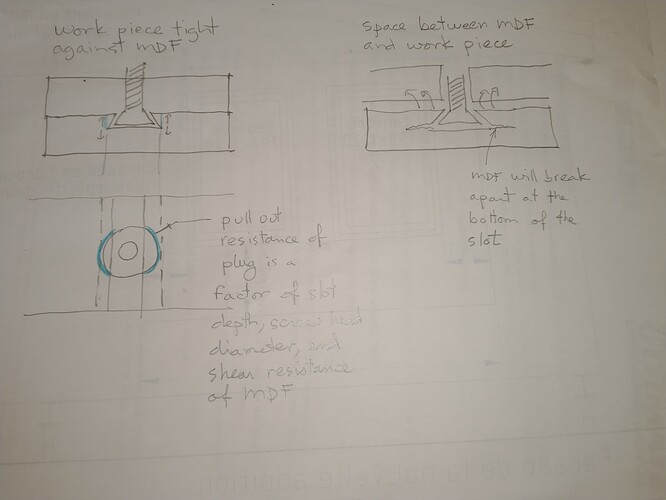 work piece tight
against MDF
space between MDF
and work piece
pull out
resistance of
plug is a
factor of slot
depth, screw head
diameter, and
shear resistance
of MDF
MDF will break
apart at the
bottom of the
slot